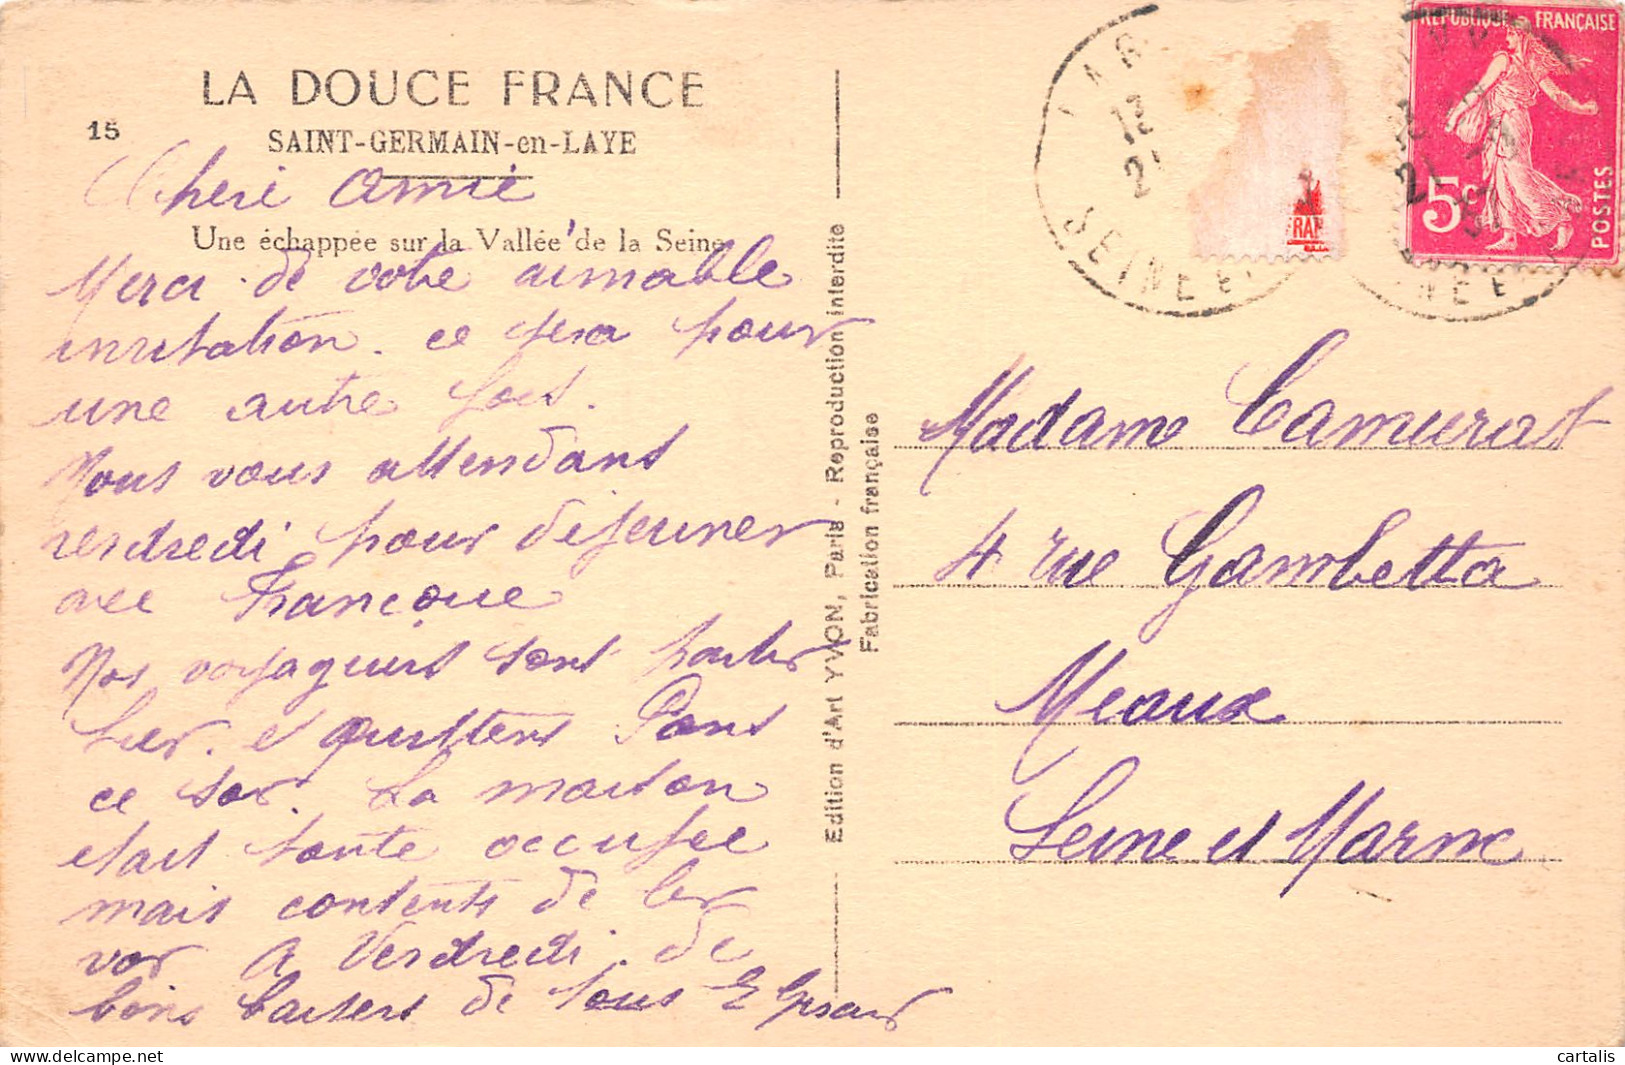 LA DOUCE FRANCE
15
SAINT-GERMAIN-en-LAYE
Cheri Amie
Une échappée sur la Vallée de la Seine
Merci de votre aimable
invitation. ce sera pour
une autre fois.
Nous vous attendons
vendredi pour dejeuner
avec
Nos voyageurs sont
hier. et Paris
ce soir. La maison
etait toute occupee
mais contents de les
voir A Vendredi. de
bons baisers de tous
Edition d'Art YVON, Paris - Reproduction interdite
Fabrication française
REPUBLIQUE FRANÇAISE
5c
POSTES
FRAN
SEINE E
Madame Camurat
4 rue Gambetta
Meaux
Seine et Marne
cartalis
delcampe.net